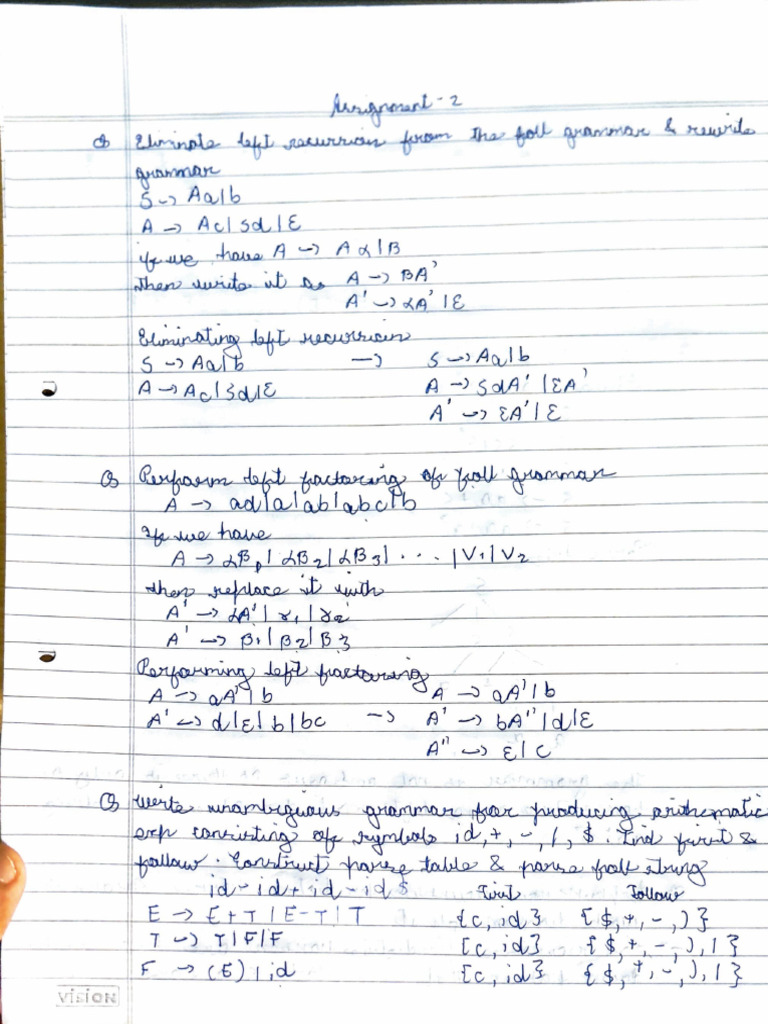 Assignment - 2
Q Eliminate left recursion from the foll grammar & rewrite
grammar
S -> Aa|b
A -> Ac|Sd|ε
If we have A -> Aα|B
then write it as A -> BA'
A' -> αA'|ε
Eliminating left recursion
S -> Aa|b -> S -> Aa|b
A -> Ac|Sd|ε A -> SdA'|εA'
A' -> εA'|ε
Q Perform left factoring of foll grammar
A -> ad|a|ab|abc|b
If we have
A -> αB₁|αB₂|αB₃|...|V₁|V₂
then replace it with
A' -> αA'|γ₁|γ₂
A' -> β₁|β₂|β3
Performing left factoring
A -> aA'|b A -> aA'|b
A' -> d|ε|b|bc -> A' -> bA''|d|ε
A'' -> ε|c
Q Write unambiguous grammar for producing arithematic
exp consisting of symbols id, +, -, /, $. Find first &
follow. Construct parse table & parse foll string
id - id + id - id $ First Follow
E -> E+T|E-T|T {c, id} {$, +, -, )}
T -> T|F|F {c, id} {$, +, -, ), /}
F -> (E)|id {c, id} {$, +, -, ), /}
VISION